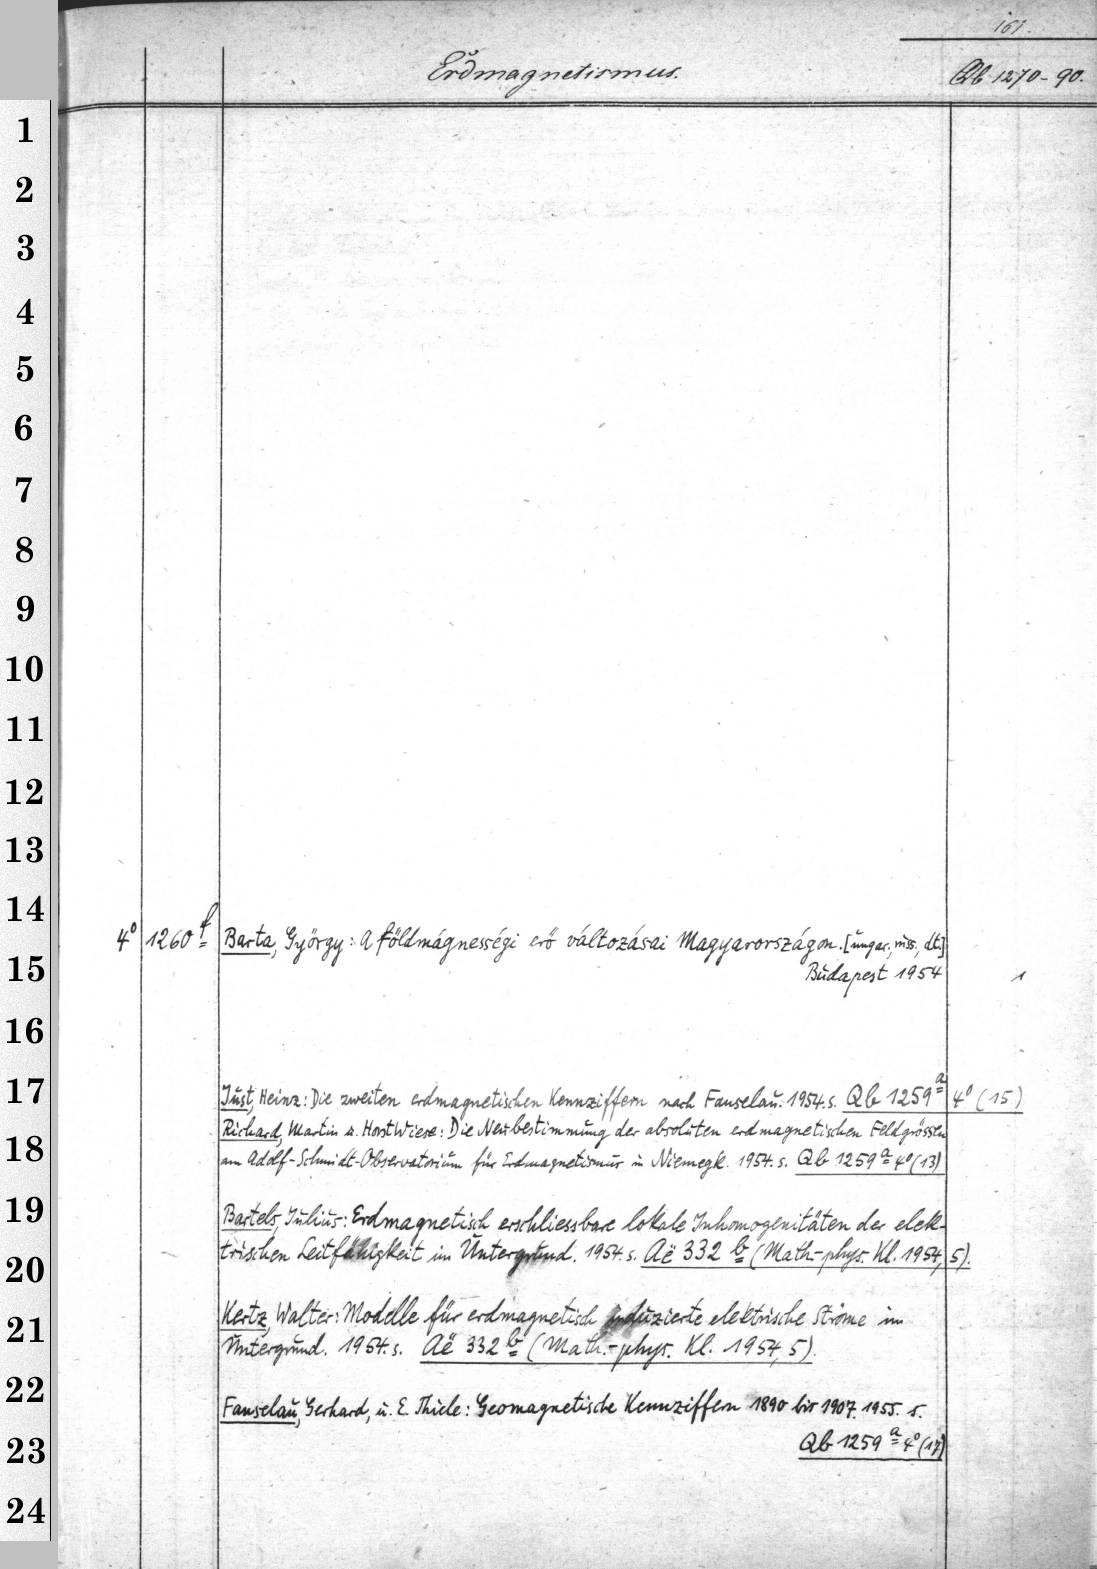 161.
Erdmagnetismus. Qb 1270-90.
1
2
3
4
5
6
7
8
9
10
11
12
13
14
4° 1260 f Barta, György: A földmágnességi erő változásai Magyarországon. [ungar., russ., dt.]
15
Budapest 1954 1
16
17
Just, Heinz: Die zweiten erdmagnetischen Kennziffern nach Fanselau. 1954. s. Qb 1259 a 4° (15)
Richard, Martin u. Horst Wiese: Die Neubestimmung der absoluten erdmagnetischen Feldgrössen
18
am Adolf-Schmidt-Observatorium für Erdmagnetismus in Niemegk. 1954. s. Qb 1259 a 4° (13)
19
Bartels, Julius: Erdmagnetisch erschliessbare lokale Inhomogenitäten der elek-
trischen Leitfähigkeit im Untergrund. 1954. s. Aë 332 b (Math.-phys. Kl. 1954, 5).
20
Kertz, Walter: Modelle für erdmagnetisch induzierte elektrische Ströme im
21
Untergrund. 1954. s. Aë 332 b (Math.-phys. Kl. 1954, 5).
22
Fanselau, Gerhard, u. E. Thiele: Geomagnetische Kennziffern 1890 bis 1907. 1955. s.
23
Qb 1259 a 4° (17)
24